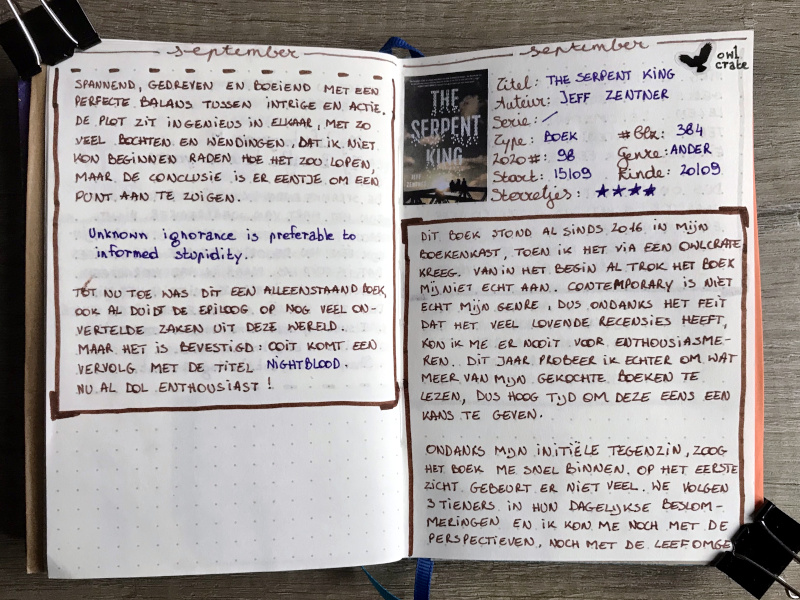 september
SPANNEND, GEDREVEN EN BOEIEND MET EEN
PERFECTE BALANS TUSSEN INTRIGE EN ACTIE.
DE PLOT ZIT INGENIEUS IN ELKAAR, MET ZO
VEEL BOCHTEN EN WENDINGEN, DAT IK NIET
KON BEGINNEN RADEN HOE HET ZOU LOPEN,
MAAR DE CONCLUSIE IS ER EENTJE OM EEN
PUNT AAN TE ZUIGEN.
Unknown ignorance is preferable to
informed stupidity.
TOT NU TOE WAS DIT EEN ALLEENSTAAND BOEK,
OOK AL DUIDT DE EPILOOG OP NOG VEEL ON-
VERTELDE ZAKEN UIT DEZE WERELD.
MAAR HET IS BEVESTIGD: OOIT KOMT EEN
VERVOLG MET DE TITEL NIGHTBLOOD.
NU AL DOL ENTHOUSIAST!
september
owl
crate
THE
SERPENT
KING
Titel: THE SERPENT KING
Auteur: JEFF ZENTNER
Serie: /
Type: BOEK #Blz: 384
2020#: 98 Genre: ANDER
Start: 15/09 Einde: 20/09
Sterretjes: ★★★★
DIT BOEK STOND AL SINDS 2016 IN MIJN
BOEKENKAST, TOEN IK HET VIA EEN OWLCRATE
KREEG. VAN IN HET BEGIN AL TROK HET BOEK
MIJ NIET ECHT AAN. CONTEMPORARY IS NIET
ECHT MIJN GENRE, DUS ONDANKS HET FEIT
DAT HET VEEL LOVENDE RECENSIES HEEFT,
KON IK ME ER NOOIT VOOR ENTHOUSIASME-
REN. DIT JAAR PROBEER IK ECHTER OM WAT
MEER VAN MIJN GEKOCHTE BOEKEN TE
LEZEN, DUS HOOG TIJD OM DEZE EENS EEN
KANS TE GEVEN.
ONDANKS MIJN INITIËLE TEGENZIN, ZOOG
HET BOEK ME SNEL BINNEN. OP HET EERSTE
ZICHT GEBEURT ER NIET VEEL. WE VOLGEN
3 TIENERS IN HUN DAGELIJKSE BESLOM-
MERINGEN EN IK KON ME NOCH MET DE
PERSPECTIEVEN, NOCH MET DE LEEFOMGE